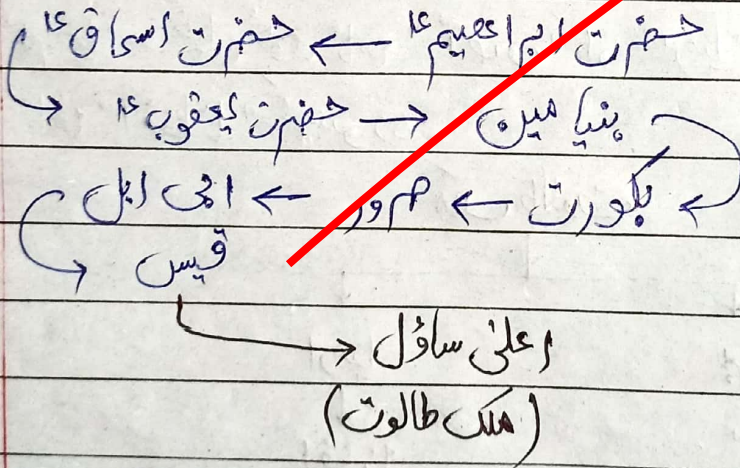 حضرت ابراھیمؑ ← حضرت اسحاقؑ
حضرت یعقوبؑ → بنیامین
بکورت ← صرور ← ابی ایل
قیس
اعلیٰ ساؤل
(ملک طالوت)